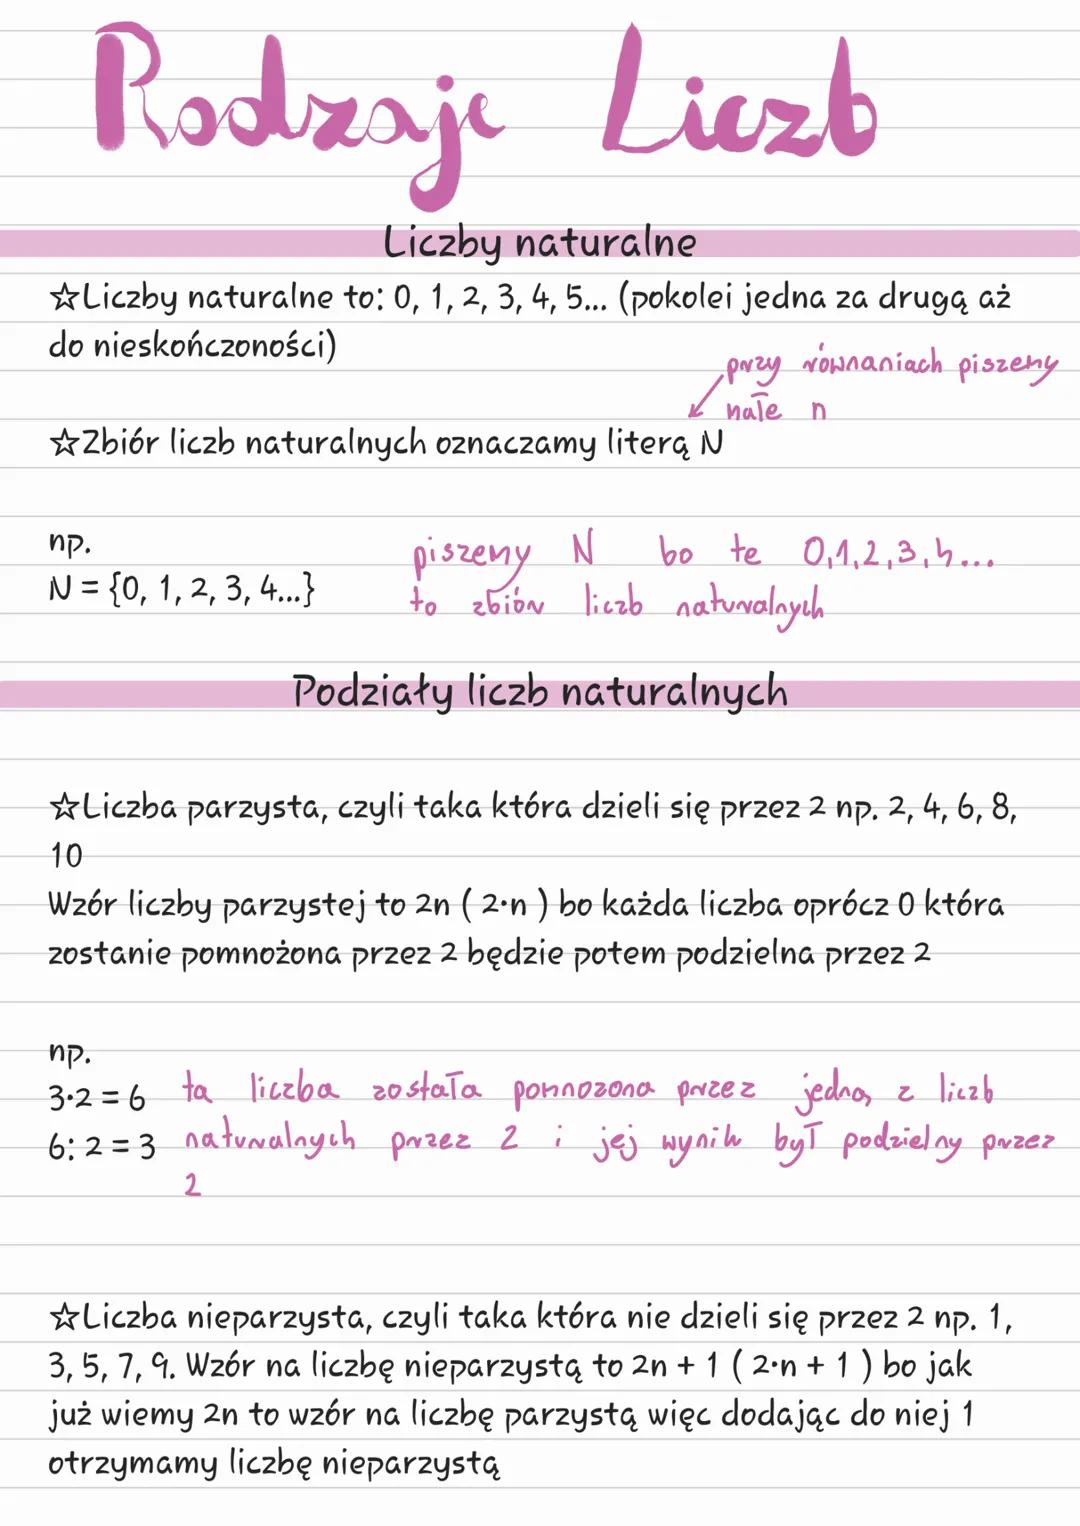 Rodzaje Liczb
Liczby naturalne
☆Liczby naturalne to: 0, 1, 2, 3, 4, 5... (pokolei jedna za drugą aż
do nieskończoności)
przy równaniach piszemy
małe n
☆Zbiór liczb naturalnych oznaczamy literą N
np.
N = {0, 1, 2, 3, 4...}
piszemy N bo te 0,1,2,3,4...
to zbiór liczb naturalnych
Podziały liczb naturalnych
☆Liczba parzysta, czyli taka która dzieli się przez 2 np. 2, 4, 6, 8,
10
Wzór liczby parzystej to 2n ( 2·n ) bo każda liczba oprócz 0 która
zostanie pomnożona przez 2 będzie potem podzielna przez 2
np.
3·2 = 6
6: 2 = 3
ta liczba została pomnożona przez jedną z liczb
naturalnych przez 2 i jej wynik był podzielny przez
2
☆Liczba nieparzysta, czyli taka która nie dzieli się przez 2 np. 1,
3, 5, 7, 9. Wzór na liczbę nieparzystą to 2n + 1 ( 2·n + 1 ) bo jak
już wiemy 2n to wzór na liczbę parzystą więc dodając do niej 1
otrzymamy liczbę nieparzystą